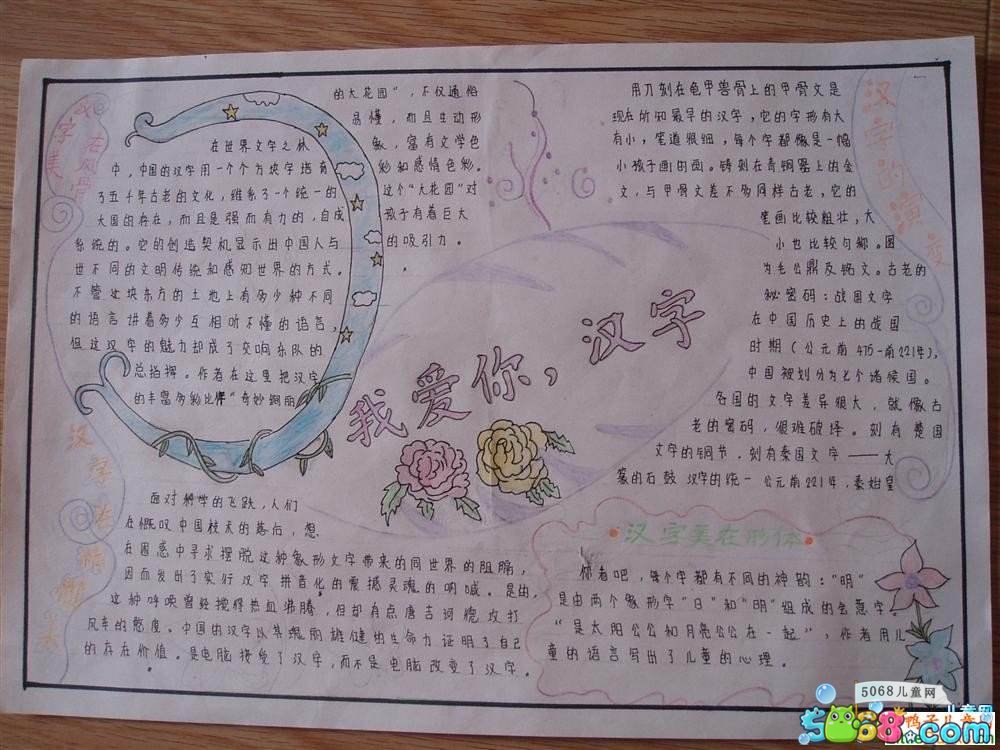 字美在风骨
在世界文字之林
中，中国的汉字用一个个方块字培育
了五千年古老的文化，维系了一个统一的
大国的存在，而且是强而有力的，自成
系统的。它的创造契机显示出中国人与
世不同的文明传统和感知世界的方式。
不管这块东方的土地上有多少种不同
的语言讲着多少互相听不懂的语言，
但这汉字的魅力却成了交响乐队的
总指挥。作者在这里把汉字
的丰富多彩比作"奇妙绚丽
的大花园"，不仅通俗
易懂，而且生动形
象，富有文学色
彩和感情色彩。
这个"大花园"对
孩子有着巨大
的吸引力。
汉字的演变
用刀刻在龟甲兽骨上的甲骨文是
现在所知最早的汉字，它的字形有大
有小，笔道很细，每个字都像是一幅
小孩子画的画。铸刻在青铜器上的金
文，与甲骨文差不多同样古老，它的
笔画比较粗壮，大
小也比较匀称。图
为毛公鼎及铭文。古老的
秘密码：战国文字
在中国历史上的战国
时期（公元前475-前221年），
中国被划分为七个诸侯国。
各国的文字差异很大，就像古
老的密码，很难破译。刻有楚国
文字的铜节，刻有秦国文字——大
篆的石鼓 汉字的统一 公元前221年，秦始皇
我爱你，汉字
汉字美在精
面对科学的飞跃，人们
在慨叹中国技术的落后，想
在困惑中寻求摆脱这种象形文字带来的同世界的阻隔，
因而发出了实行汉字拼音化的震撼灵魂的呐喊。是的，
这种呼唤曾经搅得热血沸腾，但却有点唐吉诃德攻打
风车的憨度。中国的汉字以其瑰丽雄健的生命力证明了自己
的存在价值。是电脑接受了汉字，而不是电脑改变了汉字。
汉字美在形体
你看吧，每个字都有不同的神韵："明"
是由两个象形字"日"和"明"组成的会意字。
"是太阳公公和月亮公公在一起"，作者用儿
童的语言写出了儿童的心理。
5068儿童网
5068.com